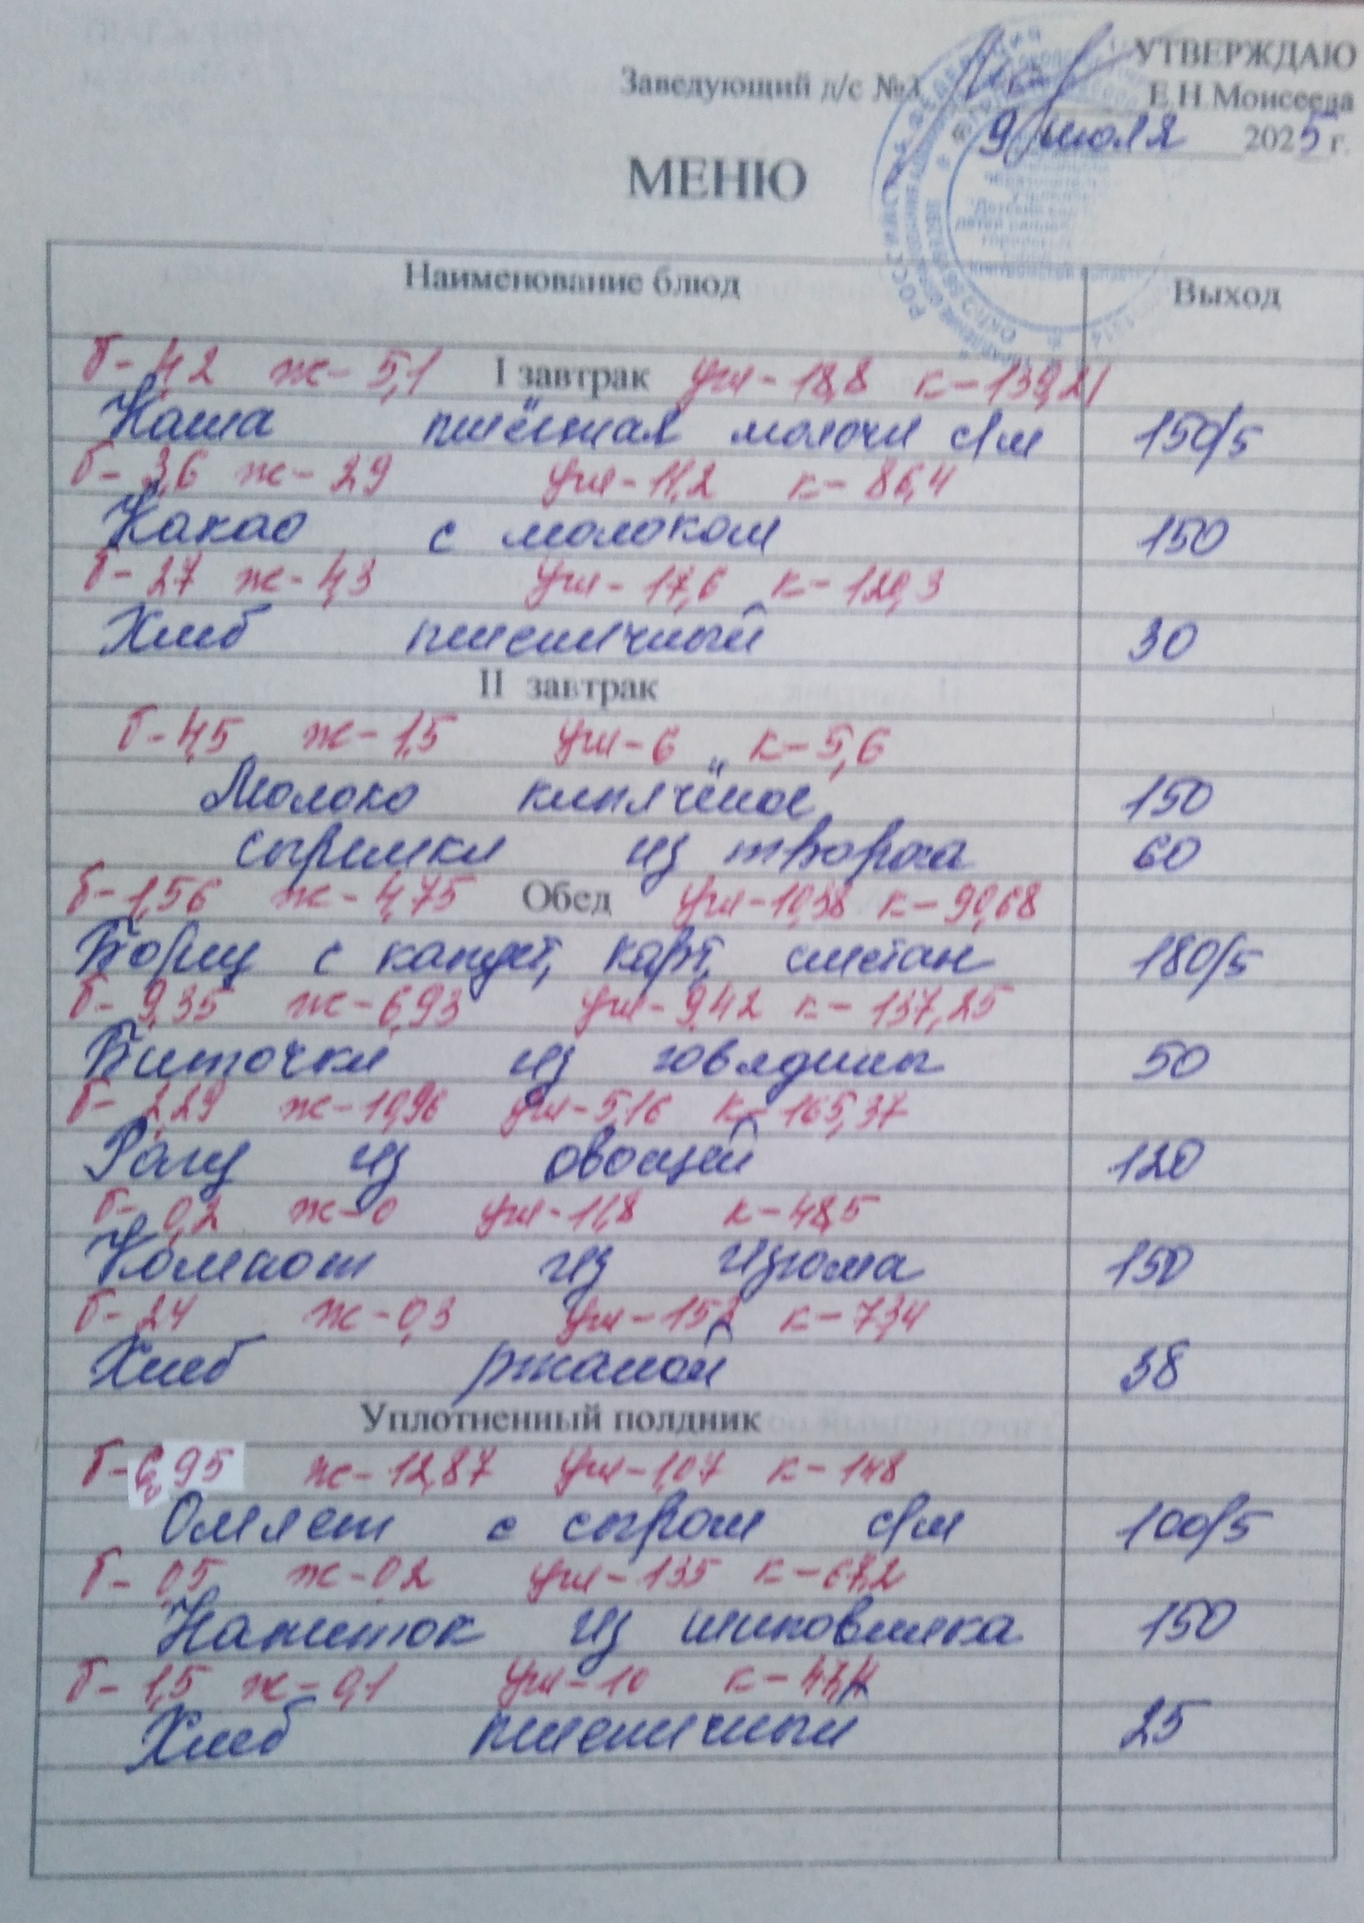 УТВЕРЖДАЮ
Заведующий д/с №3 Е.Н.Моисеева
9 июля 2025 г.
МЕНЮ
Наименование блюд Выход
б- 4,2 ж- 5,1 I завтрак угл- 18,8 к- 139,21
Каша пшённая молочн с/м 150/5
б- 3,6 ж- 2,9 угл- 11,2 к- 86,4
Какао с молоком 150
б- 2,7 ж- 4,3 угл- 17,6 к- 120,3
Хлеб пшеничный 30
II завтрак
б- 4,5 ж- 1,5 угл- 6 к- 5,6
Молоко кипячёное 150
сырники из творога 60
б- 1,56 ж- 4,75 Обед угл- 10,38 к- 90,68
Борщ с капуст, карт, сметан 180/5
б- 9,35 ж- 6,93 угл- 9,42 к- 137,25
Биточки из говядины 50
б- 2,29 ж- 10,96 угл- 5,16 к- 165,37
Рагу из овощей 120
б- 0,2 ж- 0 угл- 11,8 к- 48,5
Компот из изюма 150
б- 2,4 ж- 0,3 угл- 15,2 к- 73,4
Хлеб ржаной 38
Уплотненный полдник
б- 6,95 ж- 12,87 угл- 1,07 к- 148
Омлет с сыром с/м 100/5
б- 0,5 ж- 0,2 угл- 13,5 к- 67,2
Напиток из шиповника 150
б- 1,5 ж- 0,1 угл- 10 к- 47,4
Хлеб пшеничный 25